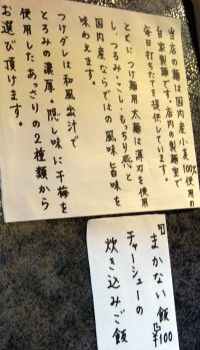 当店の麺は国内産小麦100%使用の
自家製麺です。店内の製麺室で
毎日打ちたてを提供しています。
とくにつけ麺用太麺は薄刃を使用
し、つるみ・こし・もちり感と
国内産ならではの風味旨味を
味わえます。
つけダレは和風出汁で
とろみの濃厚・隠し味に干梅を
使用したあっさりの2種類から
お選び頂けます。
まかない飯 ¥100
チャーシューの
炊き込みご飯